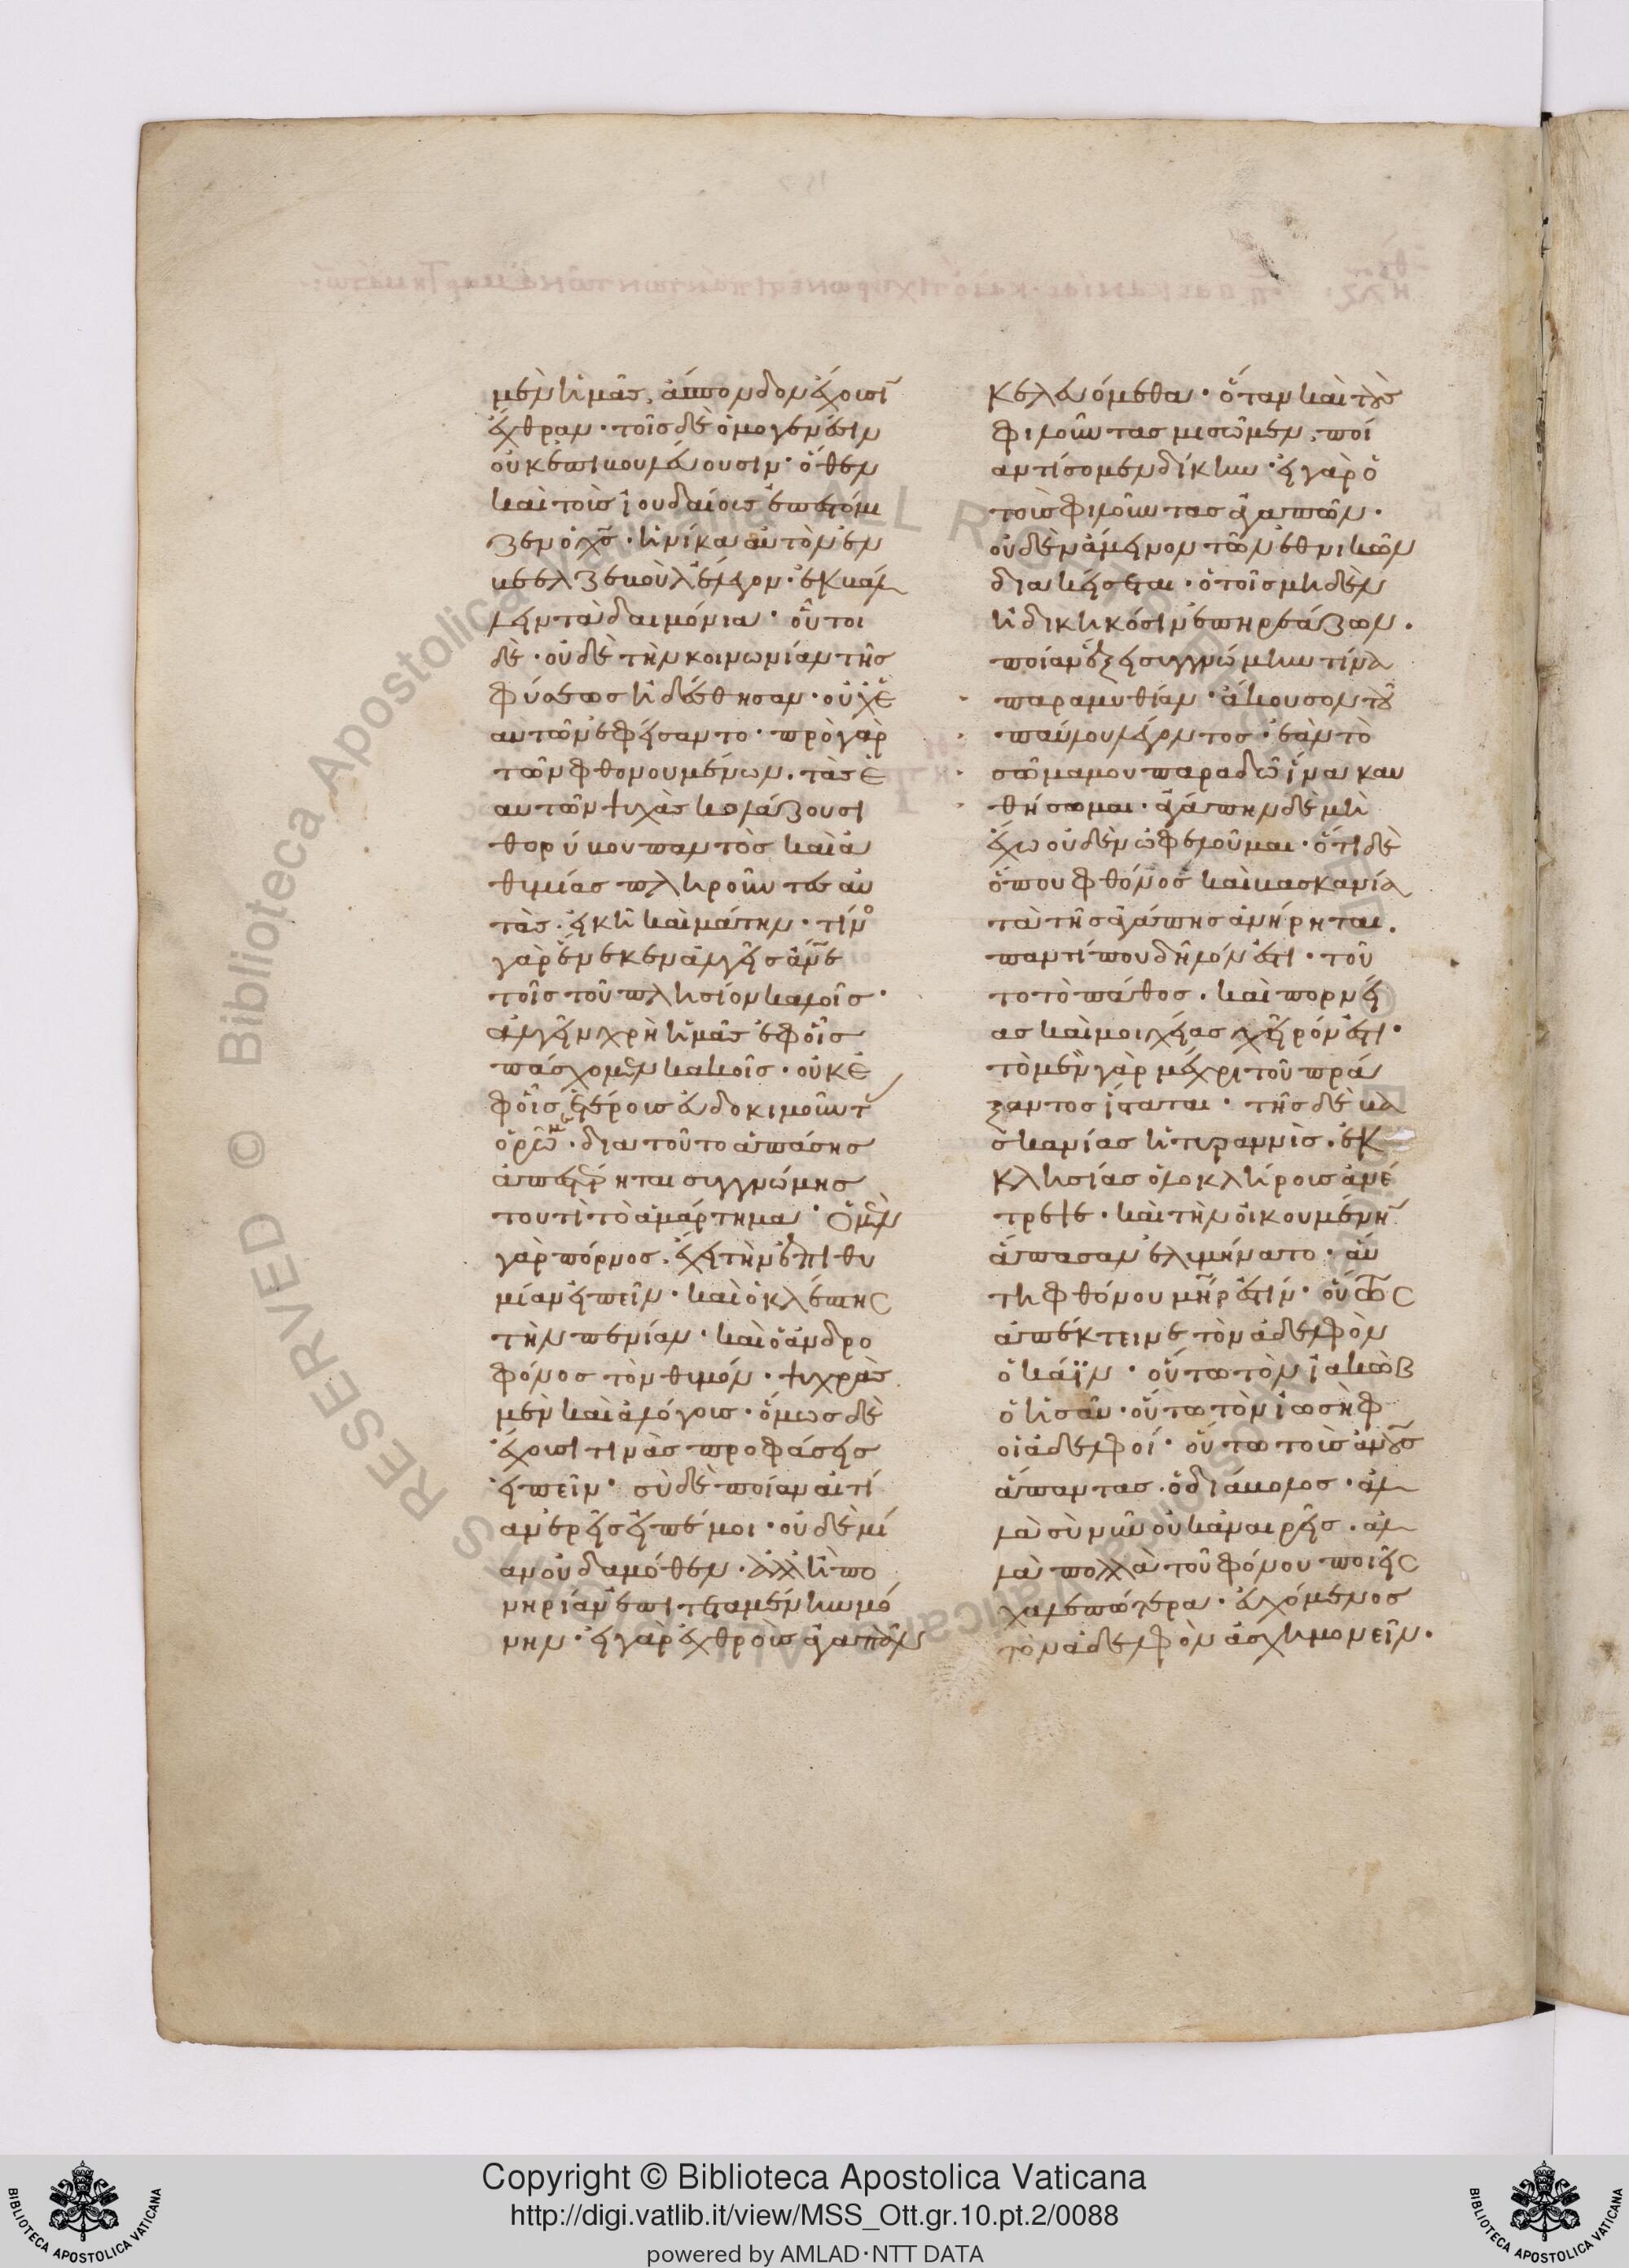 μὲν ἡμᾶς, ἄσπονδον ἔχουσι
ἔχθραν· τοῖς δὲ ὁμογενέσιν
οὐκ ἐπιβουλεύουσιν· ὅθεν
καὶ τοῖς ἰουδαίοις ἐπεστόμι
ζεν ὁ χς̅· ἡνίκα αὐτὸν ἐν
βεελζεβοὺλ ἔλεγον· ἐκβάλ
λειν τὰ δαιμόνια· οὗτοι
δὲ· οὐδὲ τὴν κοινωνίαν τῆς
φύσεως ἠδέσθησαν· οὐχ ἑ
αυτῶν ἐφείσαντο· πρὸ γὰρ
τῶν φθονουμένων. τὰς ἑ
αυτῶν ψυχὰς κολάζουσι
θορύβου παντὸς καὶ ἀ
θυμίας πληροῦντες αὐ
τὰς. εἰκῆ καὶ μάτην· τίνο
γὰρ ἕνεκεν ἀλγεῖς ἄνε
τοῖς τοῦ πλησίον καλοῖς·
ἀλγεῖν χρὴ ἡμᾶς ἐφ οἷς
πάσχομεν κακοῖς· οὐκ ἐ
φ οἷς ἑτέροις εὐδοκιμοῦντ
ὁρῶμεν· διατοῦτο ἁπάσης
ἀπεστέρηται συγγνώμης
τουτὶ τὸ ἁμάρτημα· Ὁ μὲν
γὰρ πόρνος. ἔχει τὴν ἐπιθυ
μίαν εἰπεῖν· καὶ ὁ κλέπτης
τὴν πενίαν· καὶ ὁ ἀνδρο
φόνος τὸν θυμόν· ψυχρὰς
μὲν καὶ ἀλόγους· ὅμως δὲ
ἔχουσι τινὰς προφάσεις
εἰπεῖν· σὺ δὲ ποίαν αἰτί
αν ἐρεῖς εἰπέ μοι· οὐδεμί
αν οὐδαμόθεν. ἀλλ ἢ πο
νηρίαν ἐπιτεταμένην μό
νην· εἰ γὰρ ἐχθροὺς ἀγαπᾶν
κελευόμεθα· ὅταν καὶ τοὺς
φιλοῦντας μισῶμεν, ποί
αν τίσομεν δίκην· εἰ γὰρ ὁ
τοὺς φιλοῦντας ἀγαπῶν·
οὐδὲν ἄμεινον τῶν ἐθνικῶν
διακείσεται· ὁ τοῖς μηδὲν
ἠδικηκόσιν ἐπηρεάζων.
ποίαν ἕξει συγγνώμην τίνα
παραμυθίαν· ἄκουσον τοῦ
παύλου λέγοντος· ἐὰν τὸ
σῶμα μου παραδῶ ἵνα καυ
θήσωμαι· ἀγάπην δὲ μὴ
ἔχω οὐδὲν ὠφελοῦμαι· ὅτι δὲ
ὅπου φθόνος καὶ βασκανία
τὰ τῆς ἀγάπης ἀνήρηται.
παντί που δῆλόν ἐστι· τοῦ
το τὸ πάθος. καὶ πορνεί
ας καὶ μοιχείας χεῖρόν ἐστι·
τὸ μὲν γὰρ μέχρι τοῦ πρά
ξαντος ἵσταται· τῆς δὲ βα
σκανίας ἡ τυραννὶς. ἐκ
κλησίας ὁλοκλήρους ἀνέ
τρεψε· καὶ τὴν οἰκουμένην
ἅπασαν ἐλυμήνατο· αὕ
τη φθόνου μηρ̅ ἐστίν· οὕτως
ἀπέκτεινε τὸν ἀδελφὸν
ὁ κάϊν· οὕτω τὸν ἰακὼβ
ὁ ἡσαῦ· οὕτω τὸν ἰωσὴφ
οἱ ἀδελφοί· οὕτω τοὺς ἀνους
ἅπαντας. ὁ διάβολος· ἀλ
λὰ σὺ νῦν οὐκ ἀναιρεῖς. ἀλ
λὰ πολλὰ τοῦ φόνου ποιεῖς
χαλεπώτερα· εὐχόμενος
τὸν ἀδελφὸν ἀσχημονεῖν·
© Biblioteca Apostolica Vaticana ALL RIGHTS RESERVED
Copyright © Biblioteca Apostolica Vaticana
http://digi.vatlib.it/view/MSS_Ott.gr.10.pt.2/0088
powered by AMLAD·NTT DATA
BIBLIOTECA APOSTOLICA VATICANA
BIBLIOTECA APOSTOLICA VATICANA